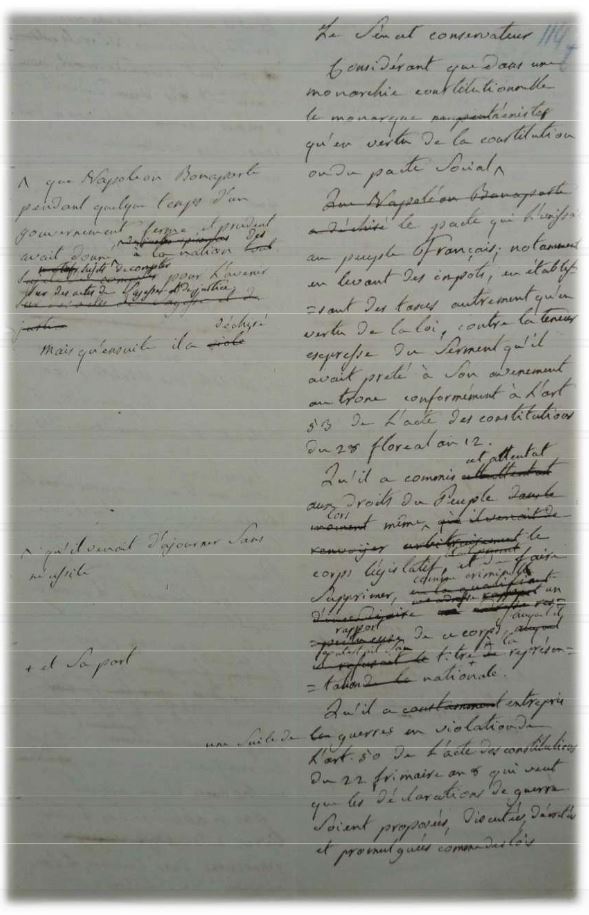 Le Sénat conservateur
114
Considérant que dans une
monarchie constitutionnelle
le monarque
qu'en vertu de la constitution
ou du pacte Social ^
Que Napoléon Bonaparte
a déchiré le pacte qui l'unissait
au peuple français, notamment
en levant des impôts, en établis
=sant des taxes autrement qu'en
vertu de la loi, contre la teneur
expresse du Serment qu'il
avait preté à Son avenement
au trone conformément à l'art
53 de l'acte des constitutions
du 28 floreal an 12.
Qu'il a commis cet attentat
aux droits du Peuple dans le
moment lors même ^ qu'il venait de
renvoyer arbitrairement le
corps législatif, et de faire
Supprimer, comme criminel
un
rapport de ce corps, auquel il
titre
la représen=
=tation nationale.
Qu'il a constamment entrepris
une Suite de guerres en violation de
l'art. 50 de l'acte des constitutions
du 22 frimaire an 8 qui veut
que les déclarations de guerre
Soient proposées, discutées, décrétées
et promulguées comme des lois
^ que Napoléon Bonaparte
pendant quelque temps d'un
gouvernement ferme et prudent
avait donné à la nation des
sujets de compter pour l'avenir
sur des actes de Sagesse et de justice,
justice
mais qu'ensuite il a violé déchiré
^ qu'il venait d'ajourner Sans
nécessité
+ et Sa part